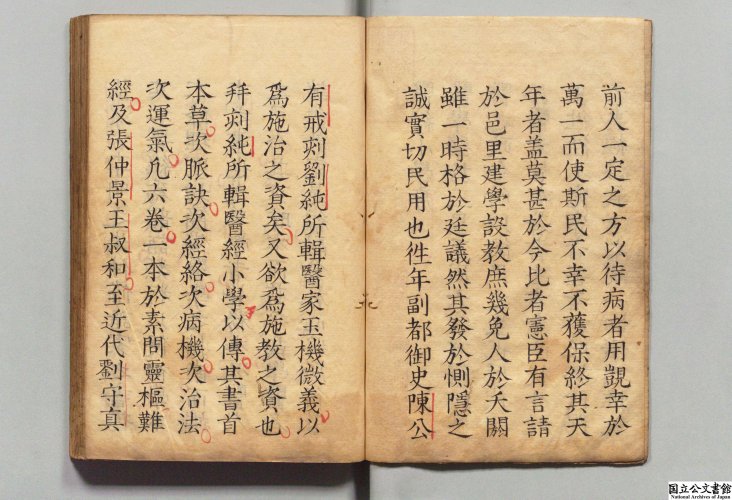 前人一定之方以待病者用覬幸於
萬一而使斯民不幸不獲保終其天
年者盖莫甚於今比者憲臣有言請
於邑里建學設教庶幾免人於夭閼
雖一時格於廷議然其發於惻隱之
誠實切民用也徃年副都御史陳公
有戒刻劉純所輯醫家玉機微義以
爲施治之資矣又欲爲施教之資也
拜刻純所輯醫經小學以傳其書首
本草次脈訣次經絡次病機次治法
次運氣凢六卷一本於素問靈樞難
經及張仲景王叔和至近代劉守真
国立公文書館
National Archives of Japan